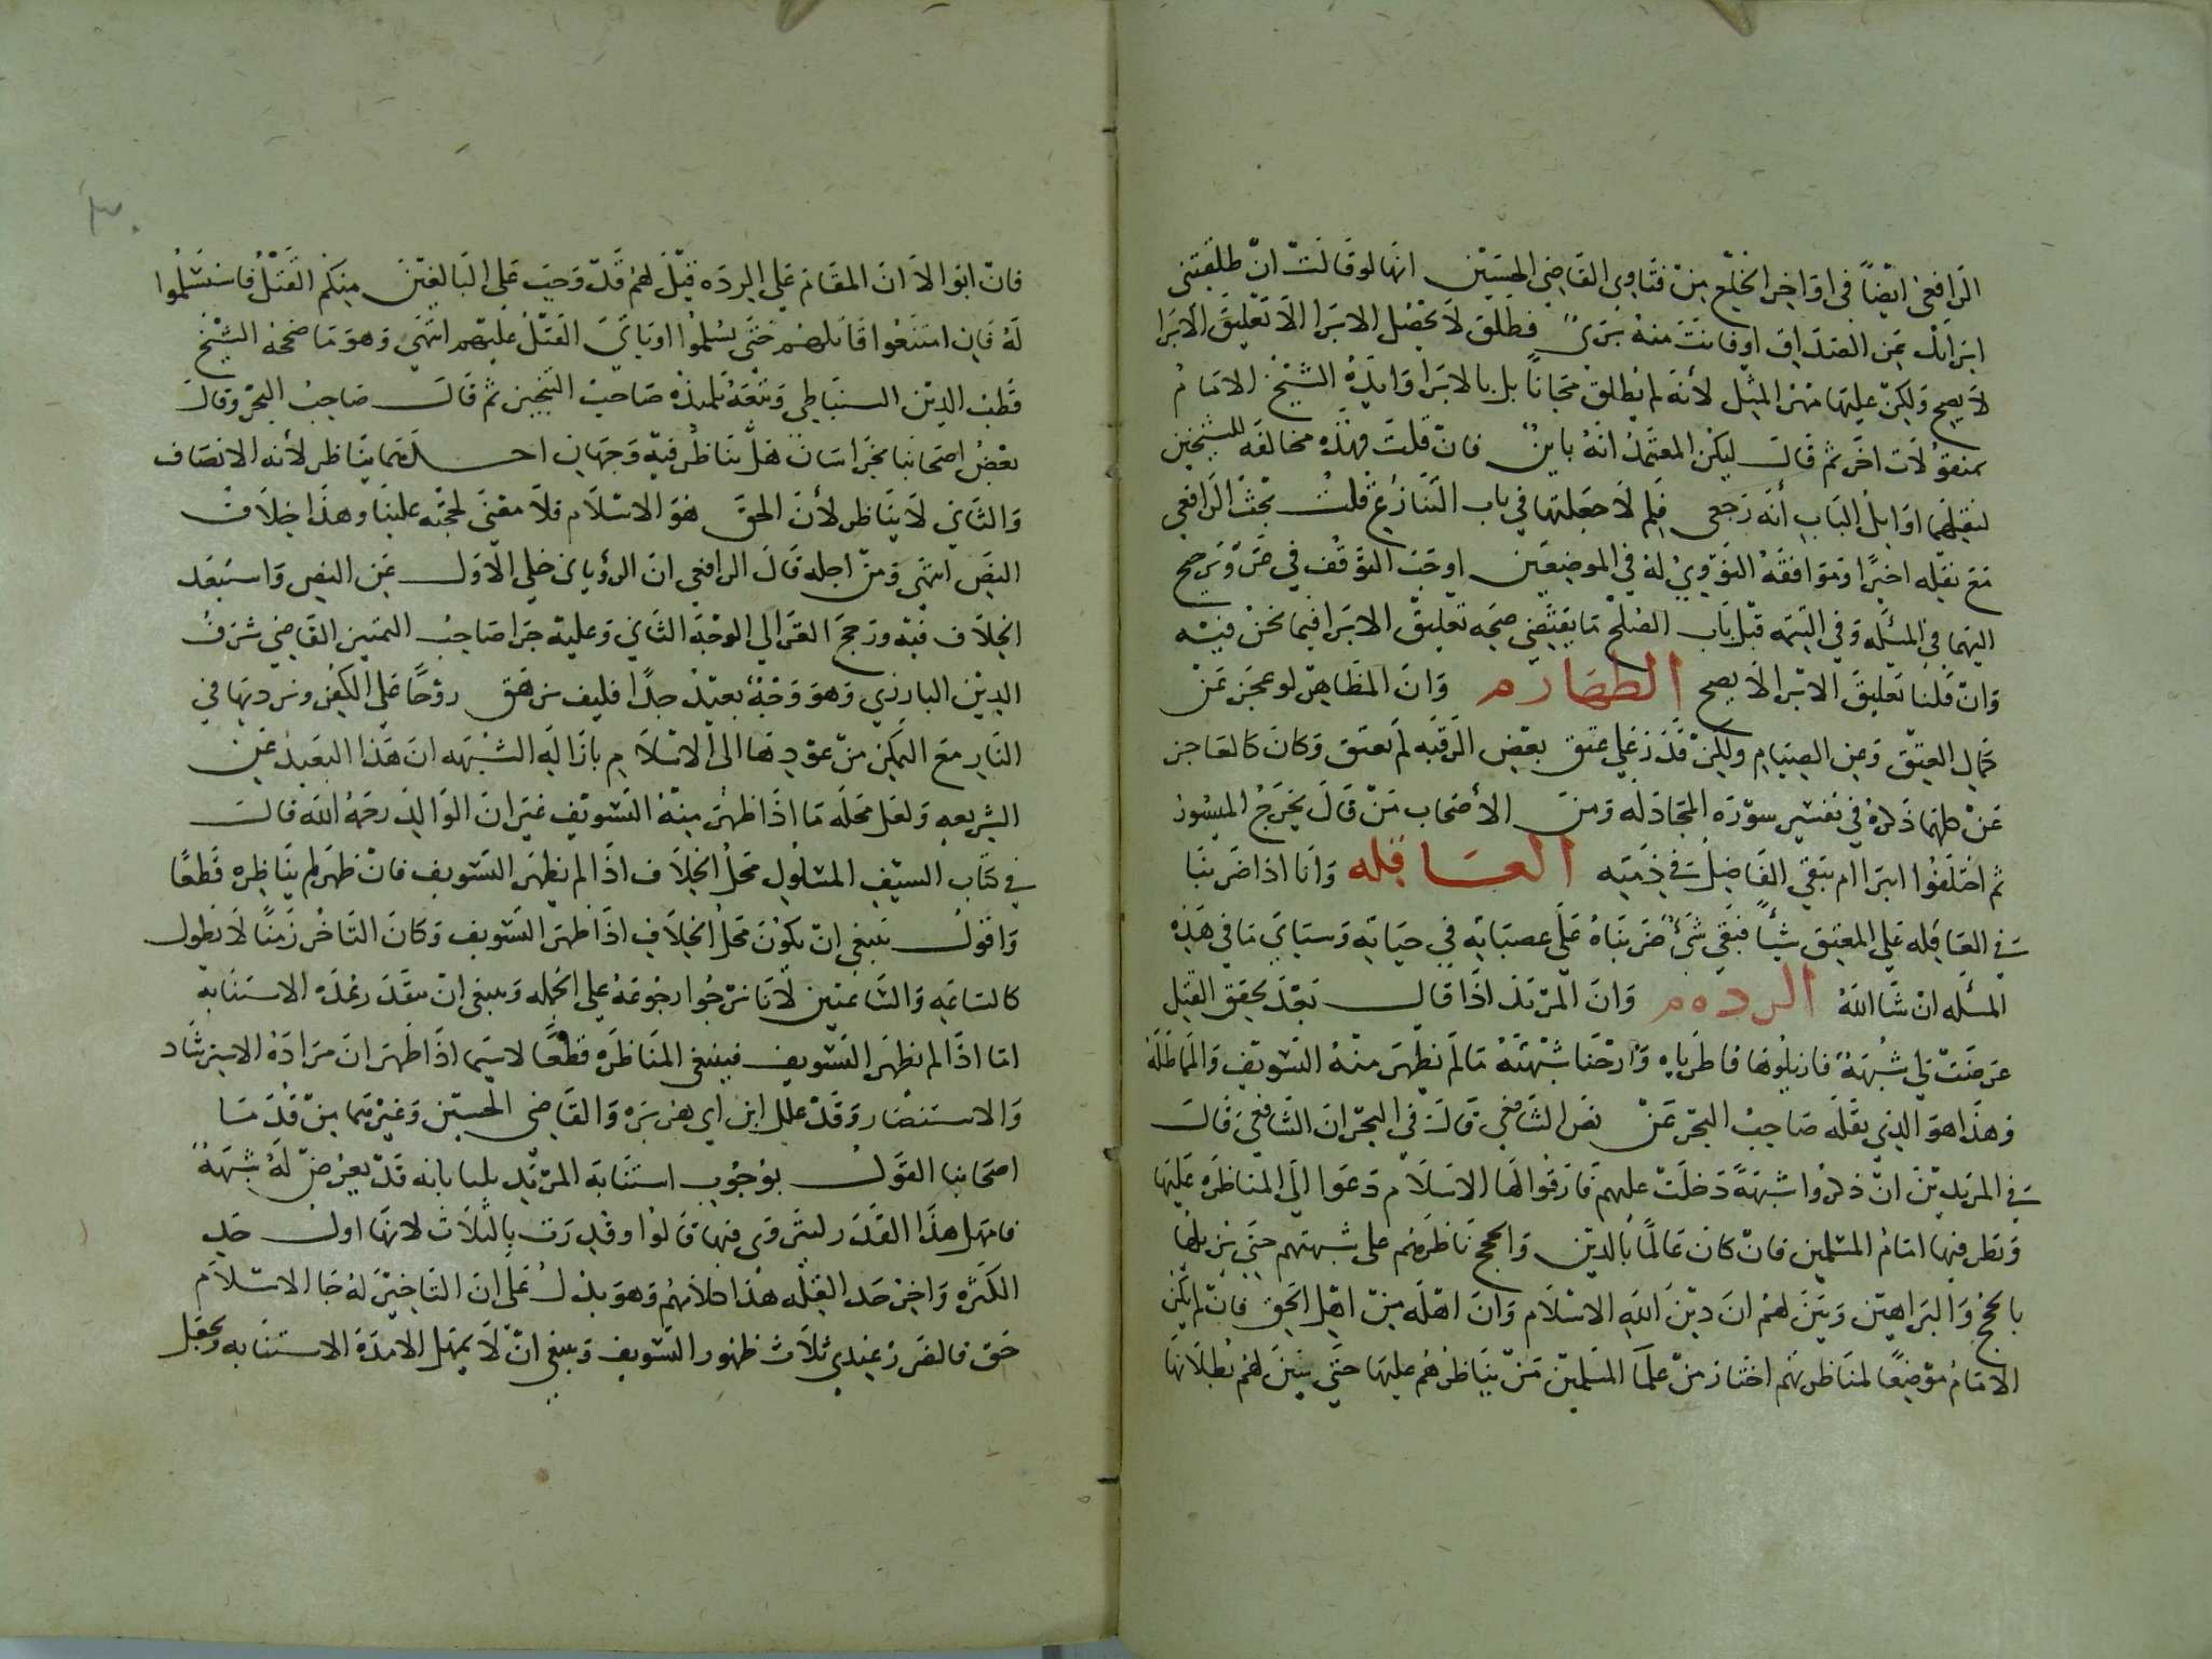 الرافعي ايضًا في اواخر الخلع من فتاوى القاضي الحسين انها لو قالت ان طلقتني
ابراتك عن الصداق او فانت منه بريّ فطلق لا يحصل الابرا الا تعليق الابرا
لا يصح ولكن عليها مهر المثل لأنه لم يطلق مجانًا بل بالابرا وايده الشيخ الامام
بمنقولات اخر ثم قال ليكن المعتمد انه باين فان قلت فهذه مخالفه للشيخين
لنقلهما اوايل الباب أنه رجعي فلم لا جعلتها في باب التنازع قلت بحث الرافعي
مع نقله اخيرًا وموافقه النووي له في الموضعين اوجب التوقف في ترجيح
اليهما في المسئله وفي التتمه قبل باب الصلح ما يقتضي صحه تعليق الابرا فيما نحن فيه
وان قلنا تعليق الابرا لا يصح الظهارم وان المظاهر لو عجز عن
كمال العتق وعن الصيام ولكن قدر على عتق بعض الرقبه لم يعتق وكان كالعاجز
عن كلهما ذكره في تفسير سورة المجادله ومن الأصحاب من قال يخرج الميسور
ثم اختلفوا ابرا ام تبقي الفاضل في ذمته العاقله وانا اذا ضربنا
في العاقله على المعتق شيأ فبقي شيءٌ ضربناه على عصباته في حياته وسياتي ما في هذه
المسئله ان شا الله الردهم وان المرتد اذا قال بعد تحقق القتل
عرضت لي شبهة فازيلوها ناظرناه وازحنا شبهته ما لم يظهر منه التسويف والمماطله
وهذا هو الذي نقله صاحب البحر عن نص الشافعي قال في البحر ان الشافعي قال
في المرتدين ان ذكروا شبهةً دخلت عليهم فارقوا لها الاسلام دعوا الى المناظره عليها
ونظر فيها امام المسلمين فان كان عالمًا بالدين والحجج ناظرهم على شبهتهم حتى يزيلها
بالحجج والبراهين وبين لهم ان دين الله الاسلام وان اهله من اهل الحق فان لم يكن
الامام موضعًا لمناظرتهم اختار من علما المسلمين من يناظرهم عليها حتى يبين لهم بطلانها
فان ابوا الا ان المقام على الرده قيل لهم قد وجب على البالغين منكم القتل فاستسلموا
له فان امتنعوا قاتلهم حتى يسلموا او ياتي القتل عليهم انتهى وهو ما صححه الشيخ
قطب الدين السنباطي وتبعه تلميذه صاحب التبيين ثم قال صاحب البحر وقال
بعض اصحابنا بخراسان هل يناظر فيه وجهان احدهما يناظر لأنه الانصاف
والثاني لا يناظر لأن الحق هو الاسلام فلا معنى لحجته علينا وهذا خلاف
النص انتهى ومن اجله قال الرافعي ان الروياني حكى الاول عن النص واستبعد
الخلاف فيه ورجح الغزالي الوجه الثاني وعليه جرا صاحب التمييز القاضي شرف
الدين البارزي وهو وجهٌ بعيد جدًا فكيف نزهق روحًا على الكفر ونرديها في
النار مع التمكن من عودها الى الاسلام بازاله الشبهه ان هذا البعيد عن
الشريعه ولعل محله ما اذا ظهر منه التسويف غير ان الوالد رحمه الله قال
في كتاب السيف المسلول محل الخلاف اذا لم يظهر التسويف فان ظهر لم يناظره قطعًا
واقول ينبغي ان يكون محل الخلاف اذا ظهر التسويف وكان التاخر زمنًا لا يطول
كالساعه والساعتين لانا نرجوا رجوعه على الجمله وينبغي ان يتقدر بمده الاستتابه
اما اذا لم يظهر التسويف فينبغي المناظره قطعًا لا سيما اذا ظهر ان مراده الاسترشاد
والاستنصار وقد علل ابن ابي هريره والقاضي الحسين وغيرهما من قدما
اصحابنا القول بوجوب استتابه المرتد بلنا بانه قد يعرض له شبهةٌ
فامهل هذا القدر ليتروى فيها قالوا وقدرت بالثلاث لانها اول حد
الكثره واخر حد القله هذا كلامهم وهو يدل على ان التاخير له جا الاسلام
حق فالضرر عندي ثلاث ظهور التسويف وينبغي ان لا يمهل الا مدة الاستتابه وتجعل